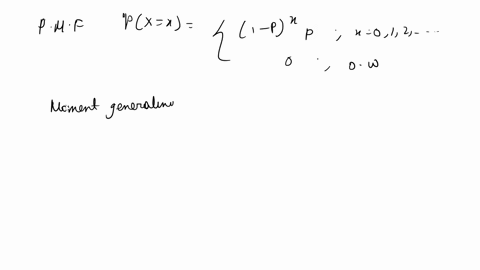 P.M.F P(X=x) = { (1-P)^x p ; x=0,1,2,....
0 ; 0.w
Moment generating